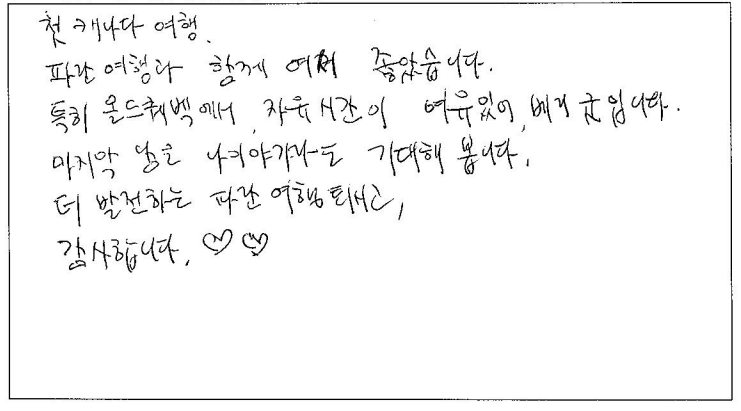 첫 캐나다 여행.
파란여행과 함께 여서 좋았습니다.
특히 올드퀘벡에서, 자유시간이 여유있어, 베리 굿입니다.
마지막 남은 나이야가라도 기대해 봅니다.
더 발전하는 파란여행 되시고,
감사합니다. ♡♡